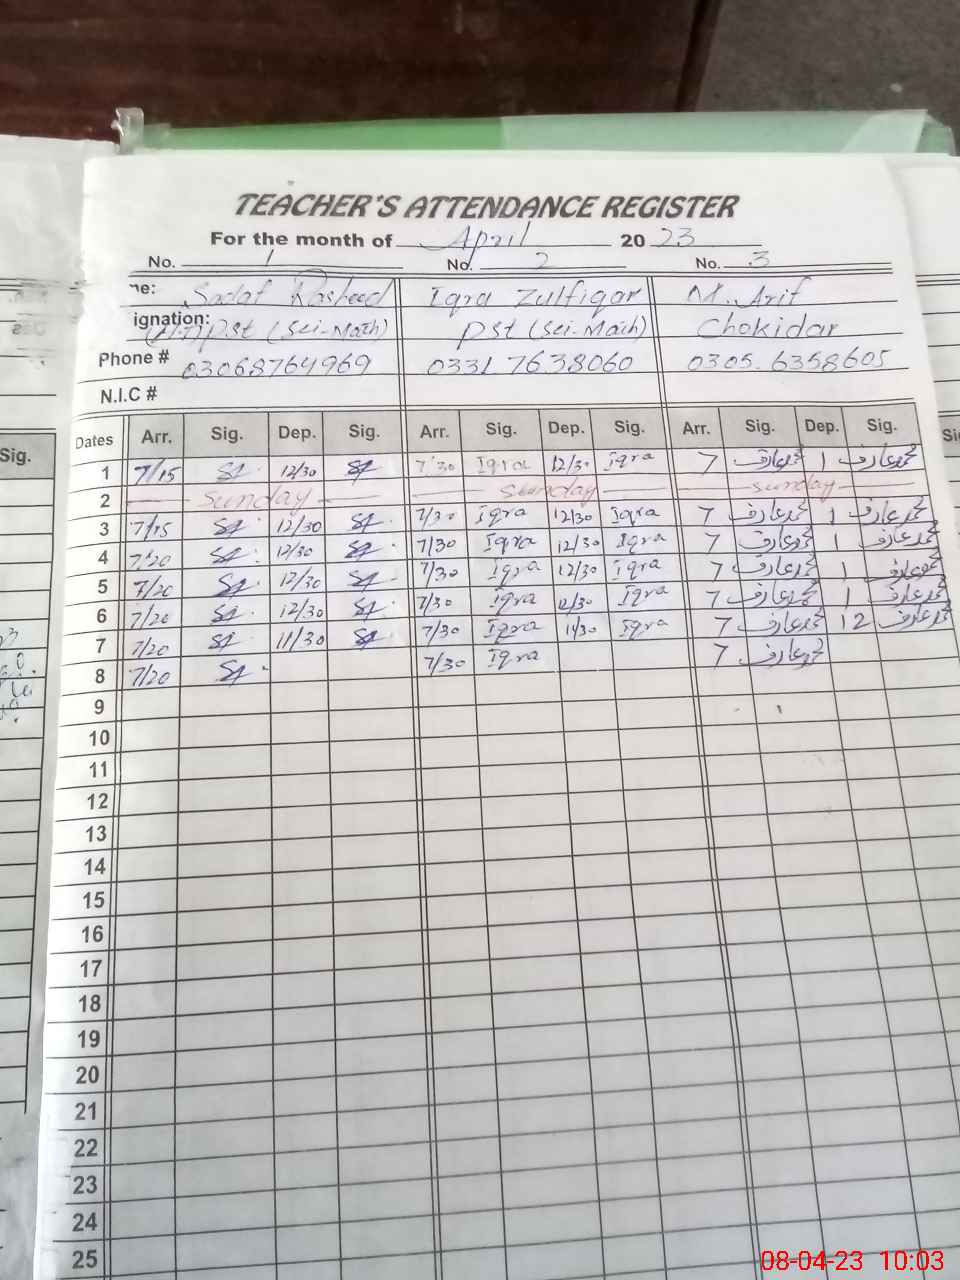 TEACHER'S ATTENDANCE REGISTER
For the month of April 2023
No. 1 No. 2 No. 3
me: Sadaf Rasheed Iqra Zulfiqar M. Arif
ignation: (H.T) Pst (Sci-Math) Pst (Sci-Math) Chokidar
Phone # 03068764969 0331 7638060 0305.6358605
N.I.C #
Dates Arr. Sig. Dep. Sig. Arr. Sig. Dep. Sig. Arr. Sig. Dep. Sig.
1 7/15 12/30 7:30 Iqra 12/30 Iqra 7 محمد عارف 1 محمد عارف
2 Sunday Sunday Sunday
3 7/15 12/30 7/30 Iqra 12/30 Iqra 7 محمد عارف 1 محمد عارف
4 7/20 12/30 7/30 Iqra 12/30 Iqra 7 محمد عارف 1 محمد عارف
5 7/20 12/30 7/30 Iqra 12/30 Iqra 7 محمد عارف 1 محمد عارف
6 7/20 12/30 7/30 Iqra 12/30 Iqra 7 محمد عارف 1 محمد عارف
7 7/20 11/30 7/30 Iqra 11/30 Iqra 7 محمد عارف 12 محمد عارف
8 7/20 7/30 Iqra 7 محمد عارف
9
10
11
12
13
14
15
16
17
18
19
20
21
22
23
24
25
Sig.
08-04-23 10:03